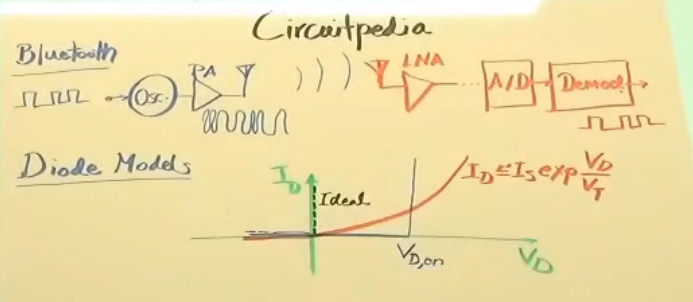 Circuitpedia
Bluetooth
Osc. PA LNA A/D Demod.
Diode Models
I_D Ideal I_D ≅ I_S exp V_D/V_T
V_D,on V_D